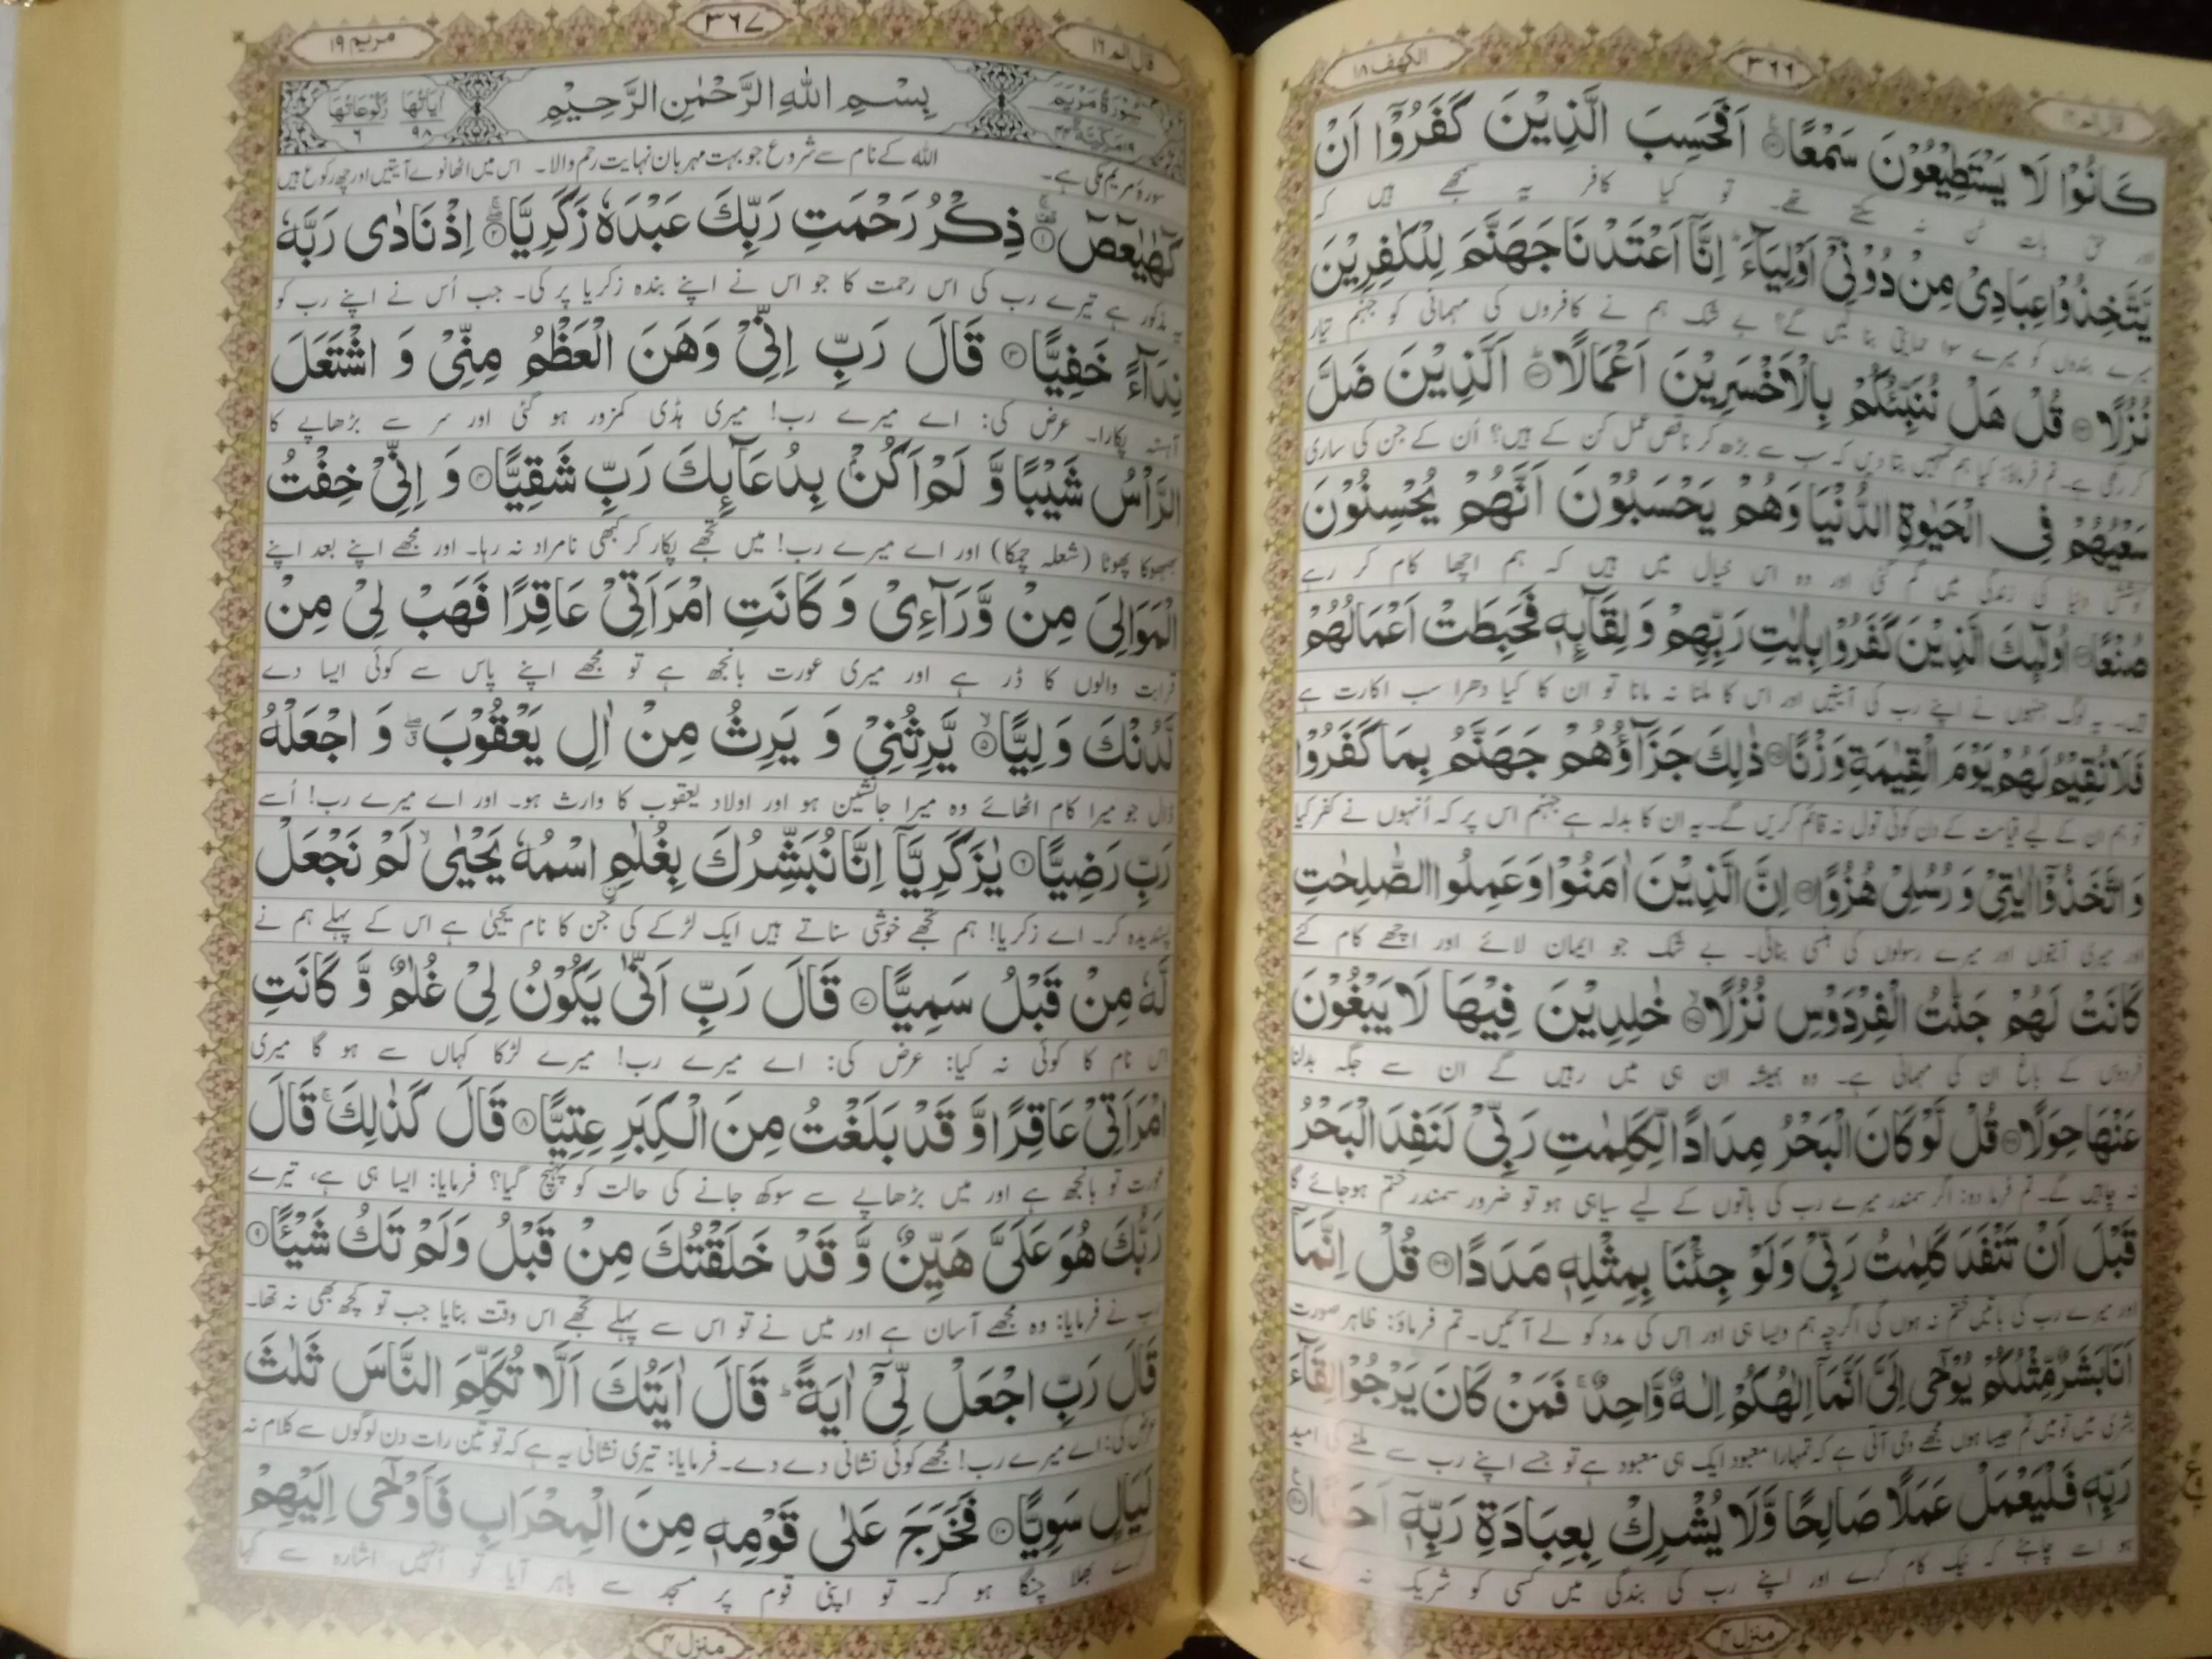 الكهف ١٨
٣٦٦
قال الم ١٦
كَانُوْا لَا يَسْتَطِيْعُوْنَ سَمْعًا اَفَحَسِبَ الَّذِيْنَ كَفَرُوْۤا اَنْ
اور حق بات سن نہ سکتے تھے۔ تو کیا کافر یہ سمجھے ہیں کہ
يَّتَّخِذُوْا عِبَادِيْ مِنْ دُوْنِيْۤ اَوْلِيَآءَ ؕ اِنَّاۤ اَعْتَدْنَا جَهَنَّمَ لِلْكٰفِرِيْنَ
میرے بندوں کو میرے سوا حمایتی بنا لیں گے؟ بے شک ہم نے کافروں کی مہمانی کو جہنم تیار
نُزُلًا قُلْ هَلْ نُنَبِّئُكُمْ بِالْاَخْسَرِيْنَ اَعْمَالًا اَلَّذِيْنَ ضَلَّ
کر رکھی ہے۔ تم فرماؤ: کیا ہم تمہیں بتا دیں کہ سب سے بڑھ کر ناقص عمل کن کے ہیں؟ اُن کے جن کی ساری
سَعْيُهُمْ فِي الْحَيٰوةِ الدُّنْيَا وَهُمْ يَحْسَبُوْنَ اَنَّهُمْ يُحْسِنُوْنَ
کوشش دنیا کی زندگی میں گم گئی اور وہ اس خیال میں ہیں کہ ہم اچھا کام کر رہے
صُنْعًا اُولٰٓئِكَ الَّذِيْنَ كَفَرُوْا بِاٰيٰتِ رَبِّهِمْ وَلِقَآئِهٖ فَحَبِطَتْ اَعْمَالُهُمْ
ہیں۔ یہ لوگ جنہوں نے اپنے رب کی آیتیں اور اس کا ملنا نہ مانا تو ان کا کیا دھرا سب اکارت ہے
فَلَا نُقِيْمُ لَهُمْ يَوْمَ الْقِيٰمَةِ وَزْنًا ذٰلِكَ جَزَآؤُهُمْ جَهَنَّمُ بِمَا كَفَرُوْا
تو ہم ان کے لیے قیامت کے دن کوئی تول نہ قائم کریں گے۔ یہ ان کا بدلہ ہے جہنم اس پر کہ اُنہوں نے کفر کیا
وَاتَّخَذُوْۤا اٰيٰتِيْ وَرُسُلِيْ هُزُوًا اِنَّ الَّذِيْنَ اٰمَنُوْا وَعَمِلُوا الصّٰلِحٰتِ
اور میری آیتوں اور میرے رسولوں کی ہنسی بنائی۔ بے شک جو ایمان لائے اور اچھے کام کئے
كَانَتْ لَهُمْ جَنّٰتُ الْفِرْدَوْسِ نُزُلًا خٰلِدِيْنَ فِيْهَا لَا يَبْغُوْنَ
فردوس کے باغ ان کی مہمانی ہے۔ وہ ہمیشہ ان ہی میں رہیں گے ان سے جگہ بدلنا
عَنْهَا حِوَلًا قُلْ لَّوْ كَانَ الْبَحْرُ مِدَادًا لِّكَلِمٰتِ رَبِّيْ لَنَفِدَ الْبَحْرُ
نہ چاہیں گے۔ تم فرما دو: اگر سمندر میرے رب کی باتوں کے لیے سیاہی ہو تو ضرور سمندر ختم ہو جائے گا
قَبْلَ اَنْ تَنْفَدَ كَلِمٰتُ رَبِّيْ وَلَوْ جِئْنَا بِمِثْلِهٖ مَدَدًا قُلْ اِنَّمَاۤ
اور میرے رب کی باتیں ختم نہ ہوں گی اگرچہ ہم ویسا ہی اور اس کی مدد کو لے آئیں۔ تم فرماؤ: ظاہر صورت
اَنَا بَشَرٌ مِّثْلُكُمْ يُوْحٰۤى اِلَيَّ اَنَّمَاۤ اِلٰهُكُمْ اِلٰهٌ وَّاحِدٌ ۚ فَمَنْ كَانَ يَرْجُوْا لِقَآءَ
بشری میں تو میں تم جیسا ہوں مجھے وحی آتی ہے کہ تمہارا معبود ایک ہی معبود ہے تو جسے اپنے رب سے ملنے کی امید
رَبِّهٖ فَلْيَعْمَلْ عَمَلًا صَالِحًا وَّلَا يُشْرِكْ بِعِبَادَةِ رَبِّهٖۤ اَحَدًا
ہو اسے چاہئے کہ نیک کام کرے اور اپنے رب کی بندگی میں کسی کو شریک نہ کرے۔
منزل ۴
مريم ١٩
٣٦٧
قال الم ١٦
سُوْرَةُ مَرْيَمَ
بِسْمِ اللّٰهِ الرَّحْمٰنِ الرَّحِيْمِ
اٰيَاتُهَا ٩٨ رُكُوْعَاتُهَا ٦
سورۂ مریم مکی ہے۔ اللہ کے نام سے شروع جو بہت مہربان نہایت رحم والا۔ اس میں اٹھانوے آیتیں اور چھ رکوع ہیں
كٓهٰيٰعٓصٓ ۝١ ذِكْرُ رَحْمَتِ رَبِّكَ عَبْدَهٗ زَكَرِيَّا ۝٢ اِذْ نَادٰى رَبَّهٗ
یہ مذکور ہے تیرے رب کی اس رحمت کا جو اس نے اپنے بندہ زکریا پر کی۔ جب اُس نے اپنے رب کو
نِدَآءً خَفِيًّا ۝٣ قَالَ رَبِّ اِنِّيْ وَهَنَ الْعَظْمُ مِنِّيْ وَ اشْتَعَلَ
آہستہ پکارا۔ عرض کی: اے میرے رب! میری ہڈی کمزور ہو گئی اور سر سے بڑھاپے کا
الرَّاْسُ شَيْبًا وَّ لَمْ اَكُنْۢ بِدُعَآئِكَ رَبِّ شَقِيًّا ۝٤ وَ اِنِّيْ خِفْتُ
بھبھوکا پھوٹا (شعلہ چمکا) اور اے میرے رب! میں تجھے پکار کر کبھی نامراد نہ رہا۔ اور مجھے اپنے بعد اپنے
الْمَوَالِيَ مِنْ وَّرَآءِيْ وَ كَانَتِ امْرَاَتِيْ عَاقِرًا فَهَبْ لِيْ مِنْ
قرابت والوں کا ڈر ہے اور میری عورت بانجھ ہے تو مجھے اپنے پاس سے کوئی ایسا دے
لَّدُنْكَ وَلِيًّا ۝٥ يَّرِثُنِيْ وَ يَرِثُ مِنْ اٰلِ يَعْقُوْبَ وَ اجْعَلْهُ
ڈال جو میرا کام اٹھائے وہ میرا جانشین ہو اور اولاد یعقوب کا وارث ہو۔ اور اے میرے رب! اُسے
رَبِّ رَضِيًّا ۝٦ يٰزَكَرِيَّاۤ اِنَّا نُبَشِّرُكَ بِغُلٰمِ اسْمُهٗ يَحْيٰى ۙ لَمْ نَجْعَلْ
پسندیدہ کر۔ اے زکریا! ہم تجھے خوشی سناتے ہیں ایک لڑکے کی جن کا نام یحییٰ ہے اس کے پہلے ہم نے
لَّهٗ مِنْ قَبْلُ سَمِيًّا ۝٧ قَالَ رَبِّ اَنّٰى يَكُوْنُ لِيْ غُلٰمٌ وَّ كَانَتِ
اس نام کا کوئی نہ کیا: عرض کی: اے میرے رب! میرے لڑکا کہاں سے ہو گا میری
امْرَاَتِيْ عَاقِرًا وَّ قَدْ بَلَغْتُ مِنَ الْكِبَرِ عِتِيًّا ۝٨ قَالَ كَذٰلِكَ ۚ قَالَ
عورت تو بانجھ ہے اور میں بڑھاپے سے سوکھ جانے کی حالت کو پہنچ گیا؟ فرمایا: ایسا ہی ہے، تیرے
رَبُّكَ هُوَ عَلَيَّ هَيِّنٌ وَّ قَدْ خَلَقْتُكَ مِنْ قَبْلُ وَلَمْ تَكُ شَيْـًٔا ۝٩
رب نے فرمایا: وہ مجھے آسان ہے اور میں نے تو اس سے پہلے تجھے اس وقت بنایا جب تو کچھ بھی نہ تھا۔
قَالَ رَبِّ اجْعَلْ لِّيْۤ اٰيَةً ؕ قَالَ اٰيَتُكَ اَلَّا تُكَلِّمَ النَّاسَ ثَلٰثَ
عرض کی: اے میرے رب! مجھے کوئی نشانی دے دے۔ فرمایا: تیری نشانی یہ ہے کہ تو تین رات دن لوگوں سے کلام نہ
لَيَالٍ سَوِيًّا ۝١٠ فَخَرَجَ عَلٰى قَوْمِهٖ مِنَ الْمِحْرَابِ فَاَوْحٰۤى اِلَيْهِمْ
کرے بھلا چنگا ہو کر۔ تو اپنی قوم پر مسجد سے باہر آیا تو انہیں اشارہ سے کہا
منزل ۴